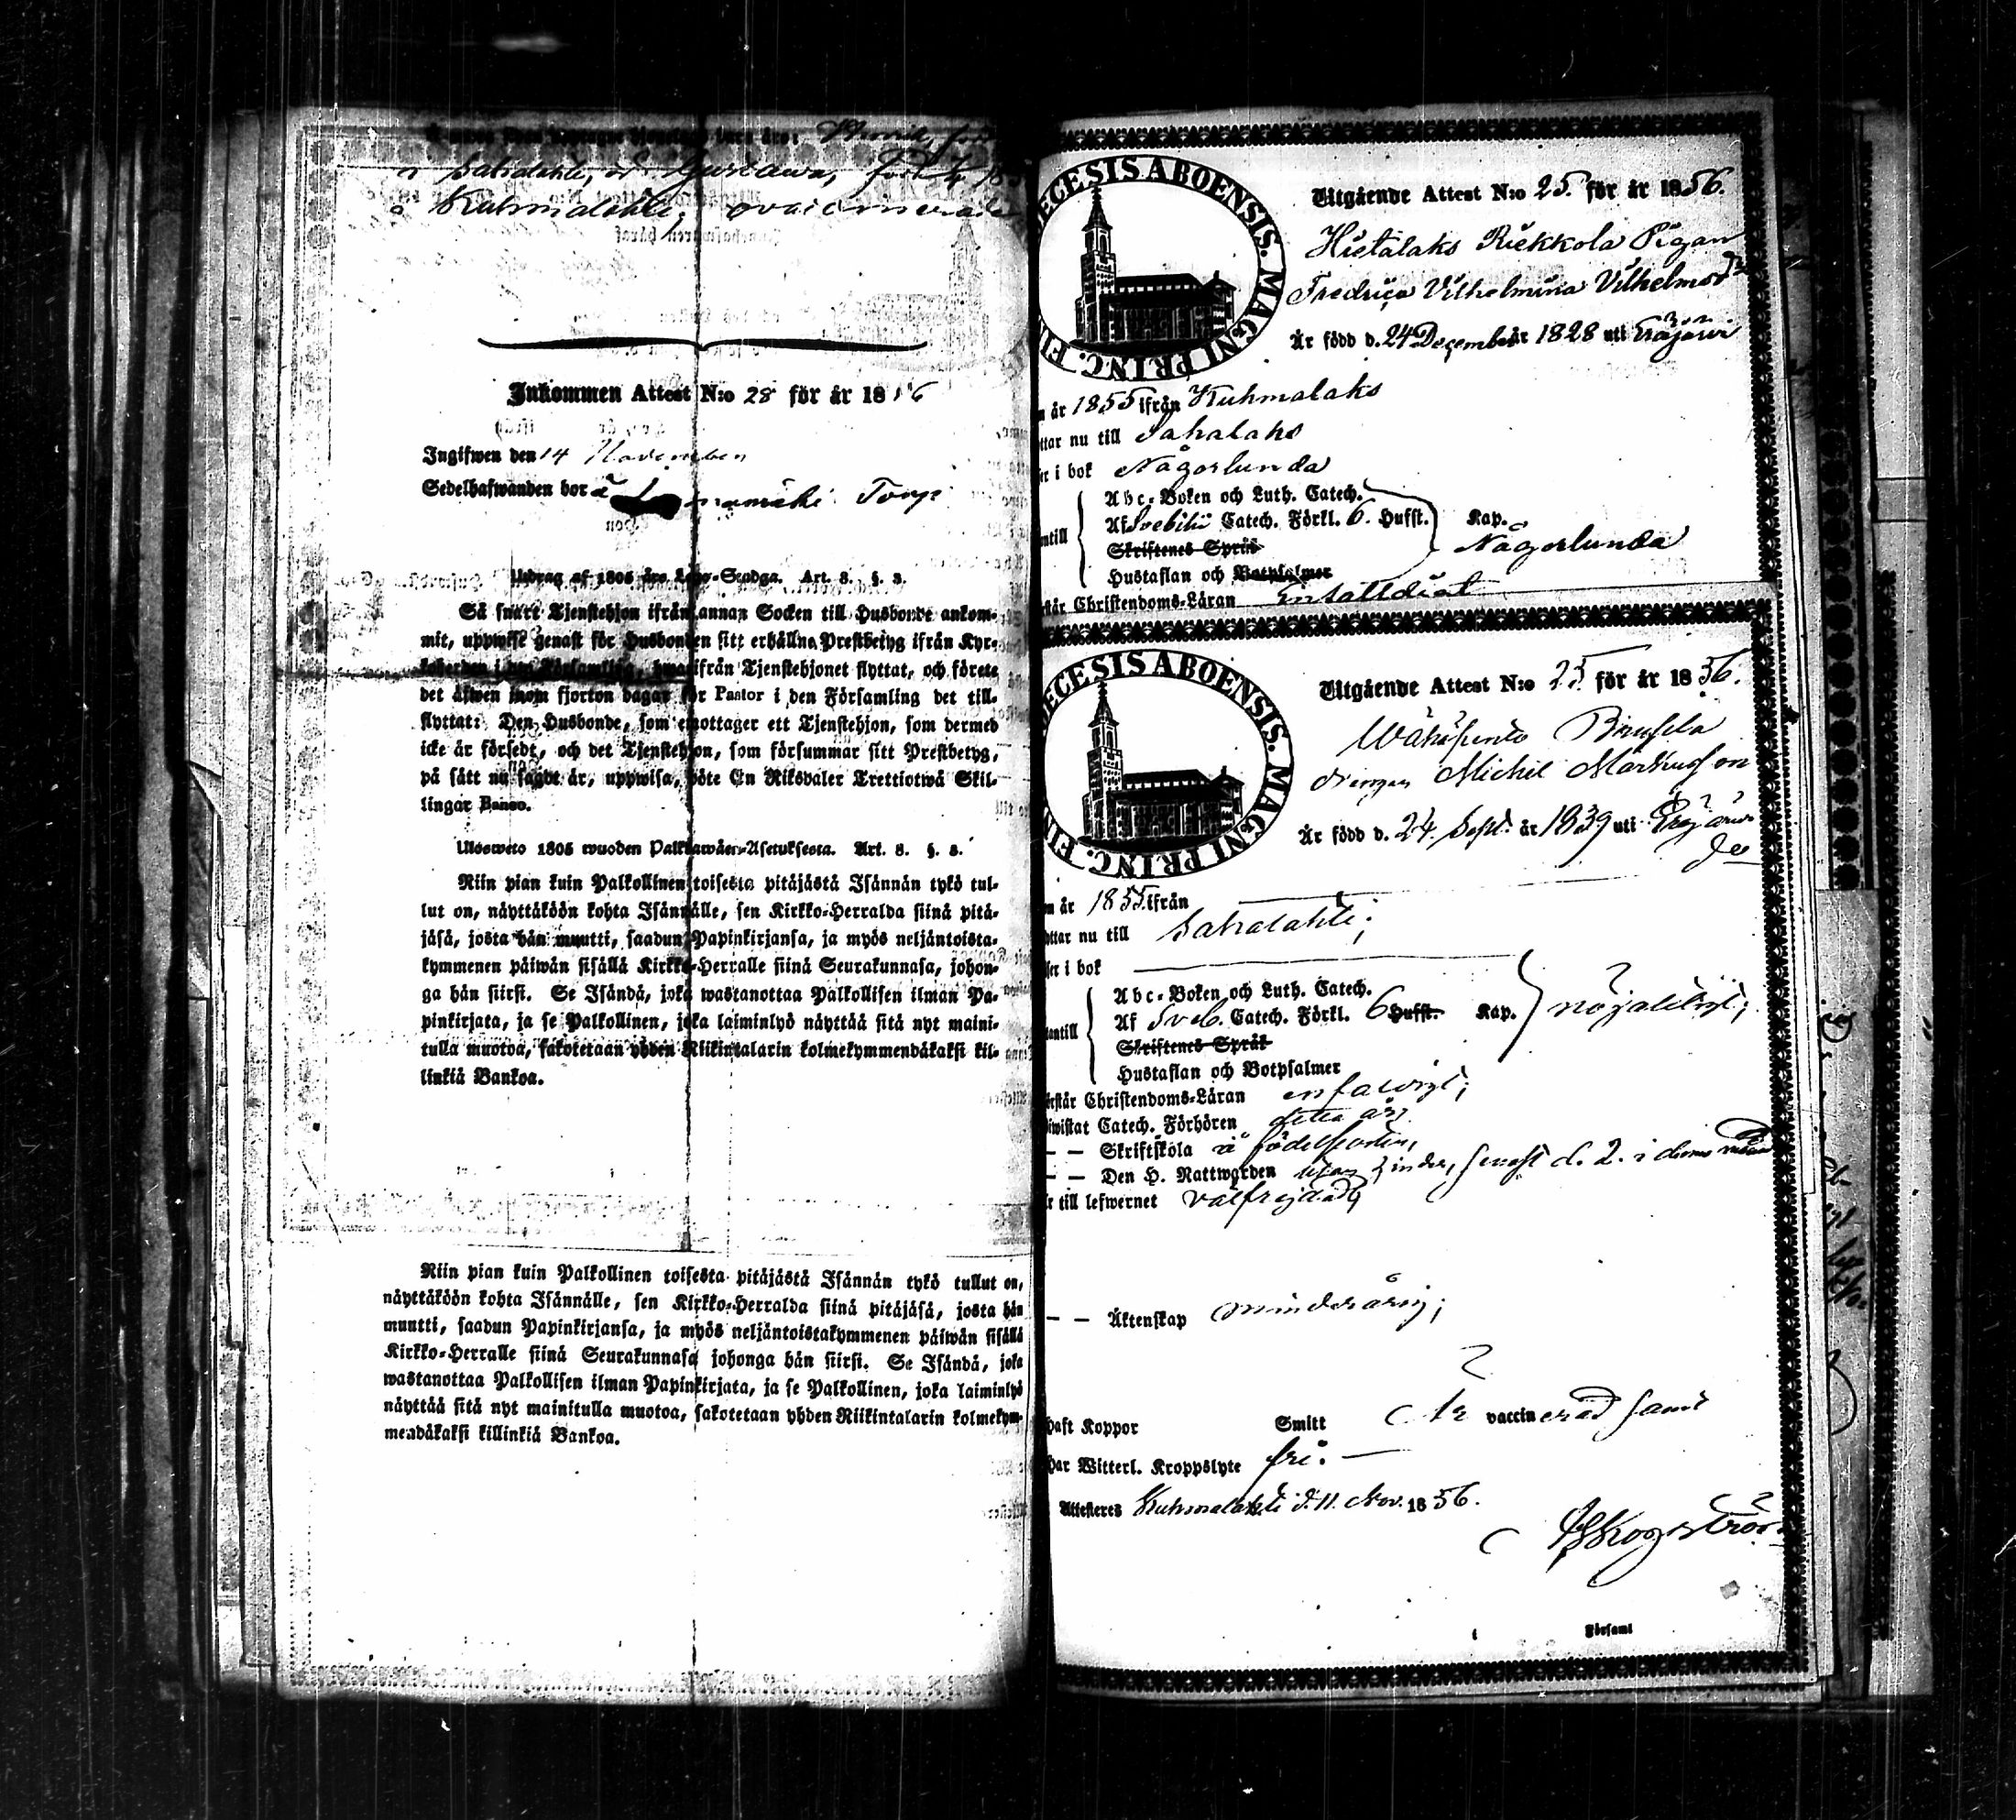 a Sahalahti, o. Gustawa, född
Kuhmalahti,
Inkommen Attest N:o 28 för år 18 6
Ingifwen den 14 November
Sedelhafwanden bor å mäki Torp
Utdrag af 1805 års Lego-Stadga. Art. 8. §. 3.
Så snart Tjenstehjon ifrån annan Socken till Husbonde ankom-
mit, uppwise genast för Husbonden sitt erhållna Prestbetyg ifrån Kyr-
koherden i den Församling, hwarifrån Tjenstehjonet flyttat, och förete
det äfwen inom fjorton dagar för Pastor i den Församling det till-
flyttat: Den Husbonde, som emottager ett Tjenstehjon, som dermed
icke är försedt, och det Tjenstehjon, som försummar sitt Prestbetyg,
på sätt nu sagdt är, uppwisa, böte En Riksdaler Trettiotwå Skil-
lingar Banco.
Ulosweto 1805 wuoden Palkkawäen-Asetuksesta. Art. 8. §. 3.
Niin pian kuin Palkollinen toisesta pitäjästä Isännän tykö tul-
lut on, näyttäköön kohta Isännälle, sen Kirkko-Herralda siinä pitä-
jäsä, josta hän muutti, saadun Papinkirjansa, ja myös neljäntoista-
kymmenen päiwän sisällä Kirkko-Herralle siinä Seurakunnasa, johon-
ga hän siirsi. Se Isändä, joka wastanottaa Palkollisen ilman Pa-
pinkirjata, ja se Palkollinen, joka laiminlyö näyttää sitä nyt maini-
tulla muotoa, sakotetaan yhden Riikintalarin kolmekymmendäkaksi kil-
linkiä Bankoa.
Niin pian kuin Palkollinen toisesta pitäjästä Isännän tykö tullut on,
näyttäköön kohta Isännälle, sen Kirkko-Herralda siinä pitäjäsä, josta hän
muutti, saadun Papinkirjansa, ja myös neljäntoistakymmenen päiwän sisällä
Kirkko-Herralle siinä Seurakunnasa johonga hän siirsi. Se Isändä, joka
wastanottaa Palkollisen ilman Papinkirjata, ja se Palkollinen, joka laiminlyö
näyttää sitä nyt mainitulla muotoa, sakotetaan yhden Riikintalarin kolmekym-
mendäkaksi killinkiä Bankoa.
ECESIS ABOENSIS. MAGNI PRINC. FIN
Utgående Attest N:o 25. för år 1856.
Hietalaks Riekkola Pigan
Fredrica Vilhelmina Vilhelmsd:r
Är född d. 24 December år 1828 uti Eräjärvi
år 1855 ifrån Kuhmalaks
ttar nu till Sahalaks
er i bok Någorlunda
Abc-Boken och Luth. Catech.
antill Af Svebilii Catech. Förkl. 6. Hufst. Kap.
Någorlunda
Skriftenes Språk
Hustaflan och Botpsalmer
står Christendoms-Läran Enfalldigt
ECESIS ABOENSIS. MAGNI PRINC. FIN
Utgående Attest N:o 25. för år 1856.
Michel Markusson
Är född d. 24. Sept. år 1839 uti Eräjärvi
m år 1855. ifrån
ttar nu till Sahalahti;
ser i bok
Abc-Boken och Luth. Catech.
antill Af Sveb. Catech. Förkl. 6 Hufst. Kap. nöjaktigt;
Skriftenes Språk
Hustaflan och Botpsalmer
rstår Christendoms-Läran enfaldigt;
iwistat Catech. Förhören detta år;
— — Skriftskola å födelseorten,
— — Den H. Nattwarden utan hinder, senast d. 2. i denna månad
r till lefwernet välfrejdad,
— — Äktenskap minderårig;
haft Koppor Smitt Är vaccinerad samt
har Witterl. Kroppslyte fri. —
Attesteres Kuhmalahti d. 11. Nov. 1856.
Skogström
Församl